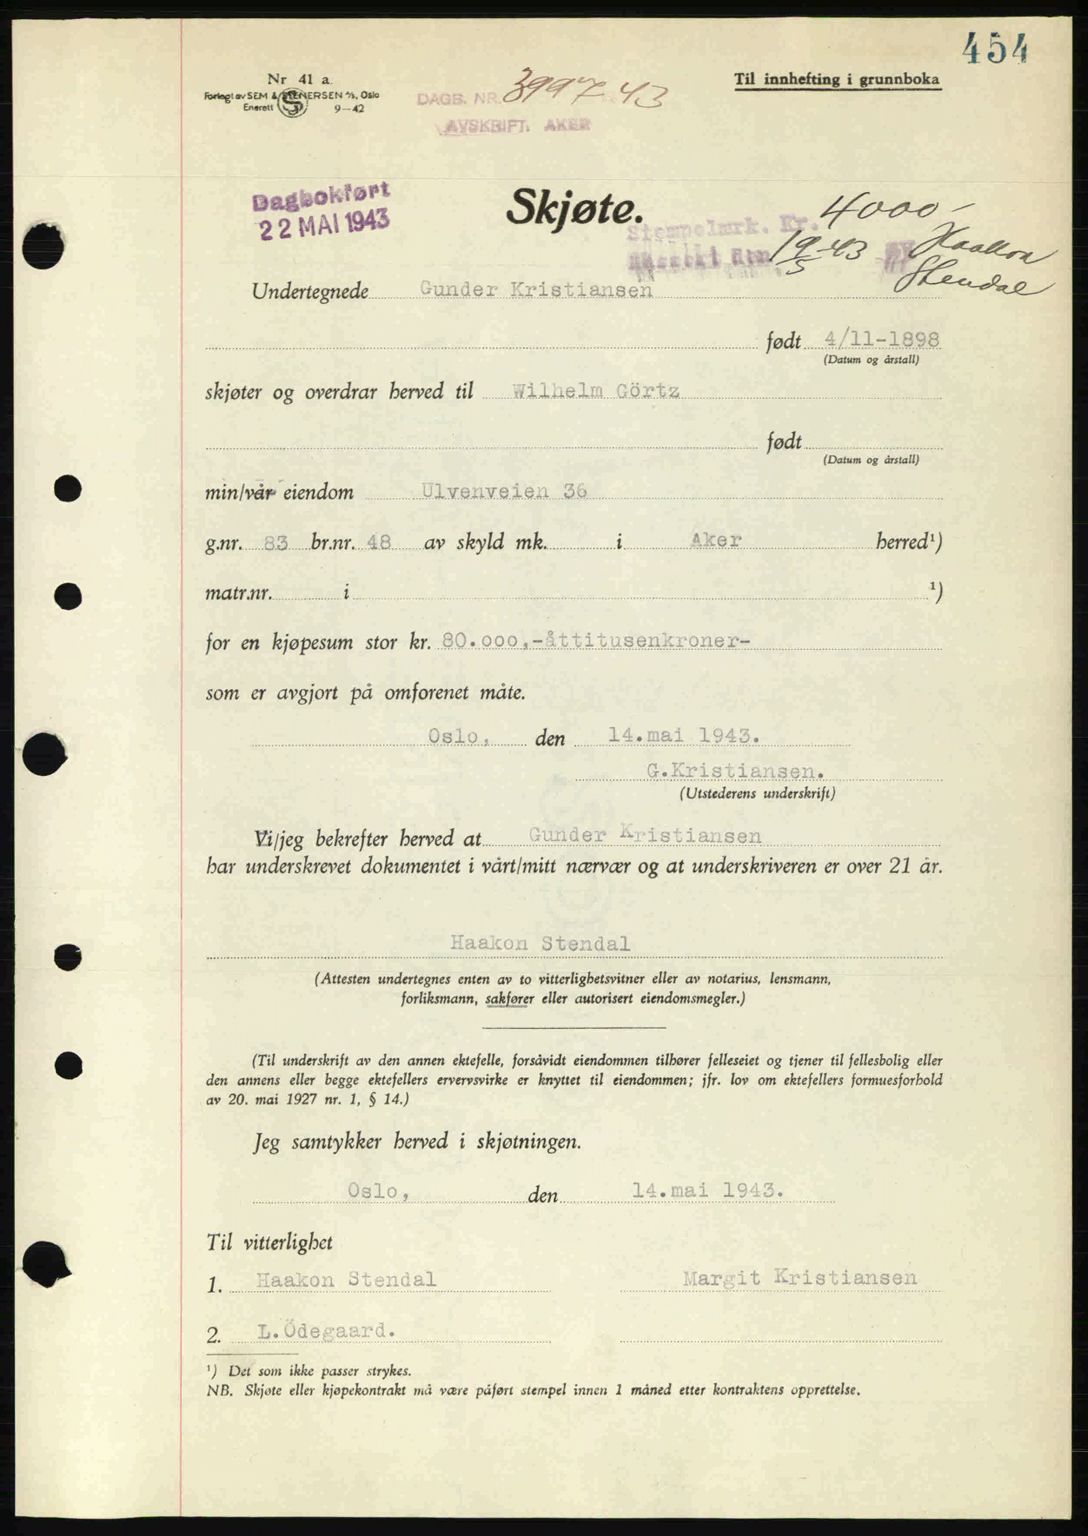 454
Nr 41 a.
Til innhefting i grunnboka
Forlagt av SEM & STENERSEN A/S, Oslo
Enerett 9-42
DAGB. NR. 3997-43
AVSKRIFT. AKER
Dagbokført
22 MAI 1943
Skjøte.
Stempelmrk. Kr. 4000-
19/5-43 Haakon
Stendal
Undertegnede Gunder Kristiansen
født 4/11-1898
(Datum og årstall)
skjøter og overdrar herved til Wilhelm Görtz
født
(Datum og årstall)
min/vår eiendom Ulvenveien 36
g.nr. 83 br.nr. 48 av skyld mk. i Aker herred¹)
matr.nr. i ¹)
for en kjøpesum stor kr. 80.000,-åttitusenkroner-
som er avgjort på omforenet måte.
Oslo, den 14.mai 1943.
G.Kristiansen.
(Utstederens underskrift)
Vi/jeg bekrefter herved at Gunder Kristiansen
har underskrevet dokumentet i vårt/mitt nærvær og at underskriveren er over 21 år.
Haakon Stendal
(Attesten undertegnes enten av to vitterlighetsvitner eller av notarius, lensmann,
forliksmann, sakfører eller autorisert eiendomsmegler.)
(Til underskrift av den annen ektefelle, forsåvidt eiendommen tilhører felleseiet og tjener til fellesbolig eller
den annens eller begge ektefellers ervervsvirke er knyttet til eiendommen; jfr. lov om ektefellers formuesforhold
av 20. mai 1927 nr. 1, § 14.)
Jeg samtykker herved i skjøtningen.
Oslo, den 14.mai 1943.
Til vitterlighet
1. Haakon Stendal Margit Kristiansen
2. L.Ödegaard.
¹) Det som ikke passer strykes.
NB. Skjøte eller kjøpekontrakt må være påført stempel innen 1 måned etter kontraktens opprettelse.